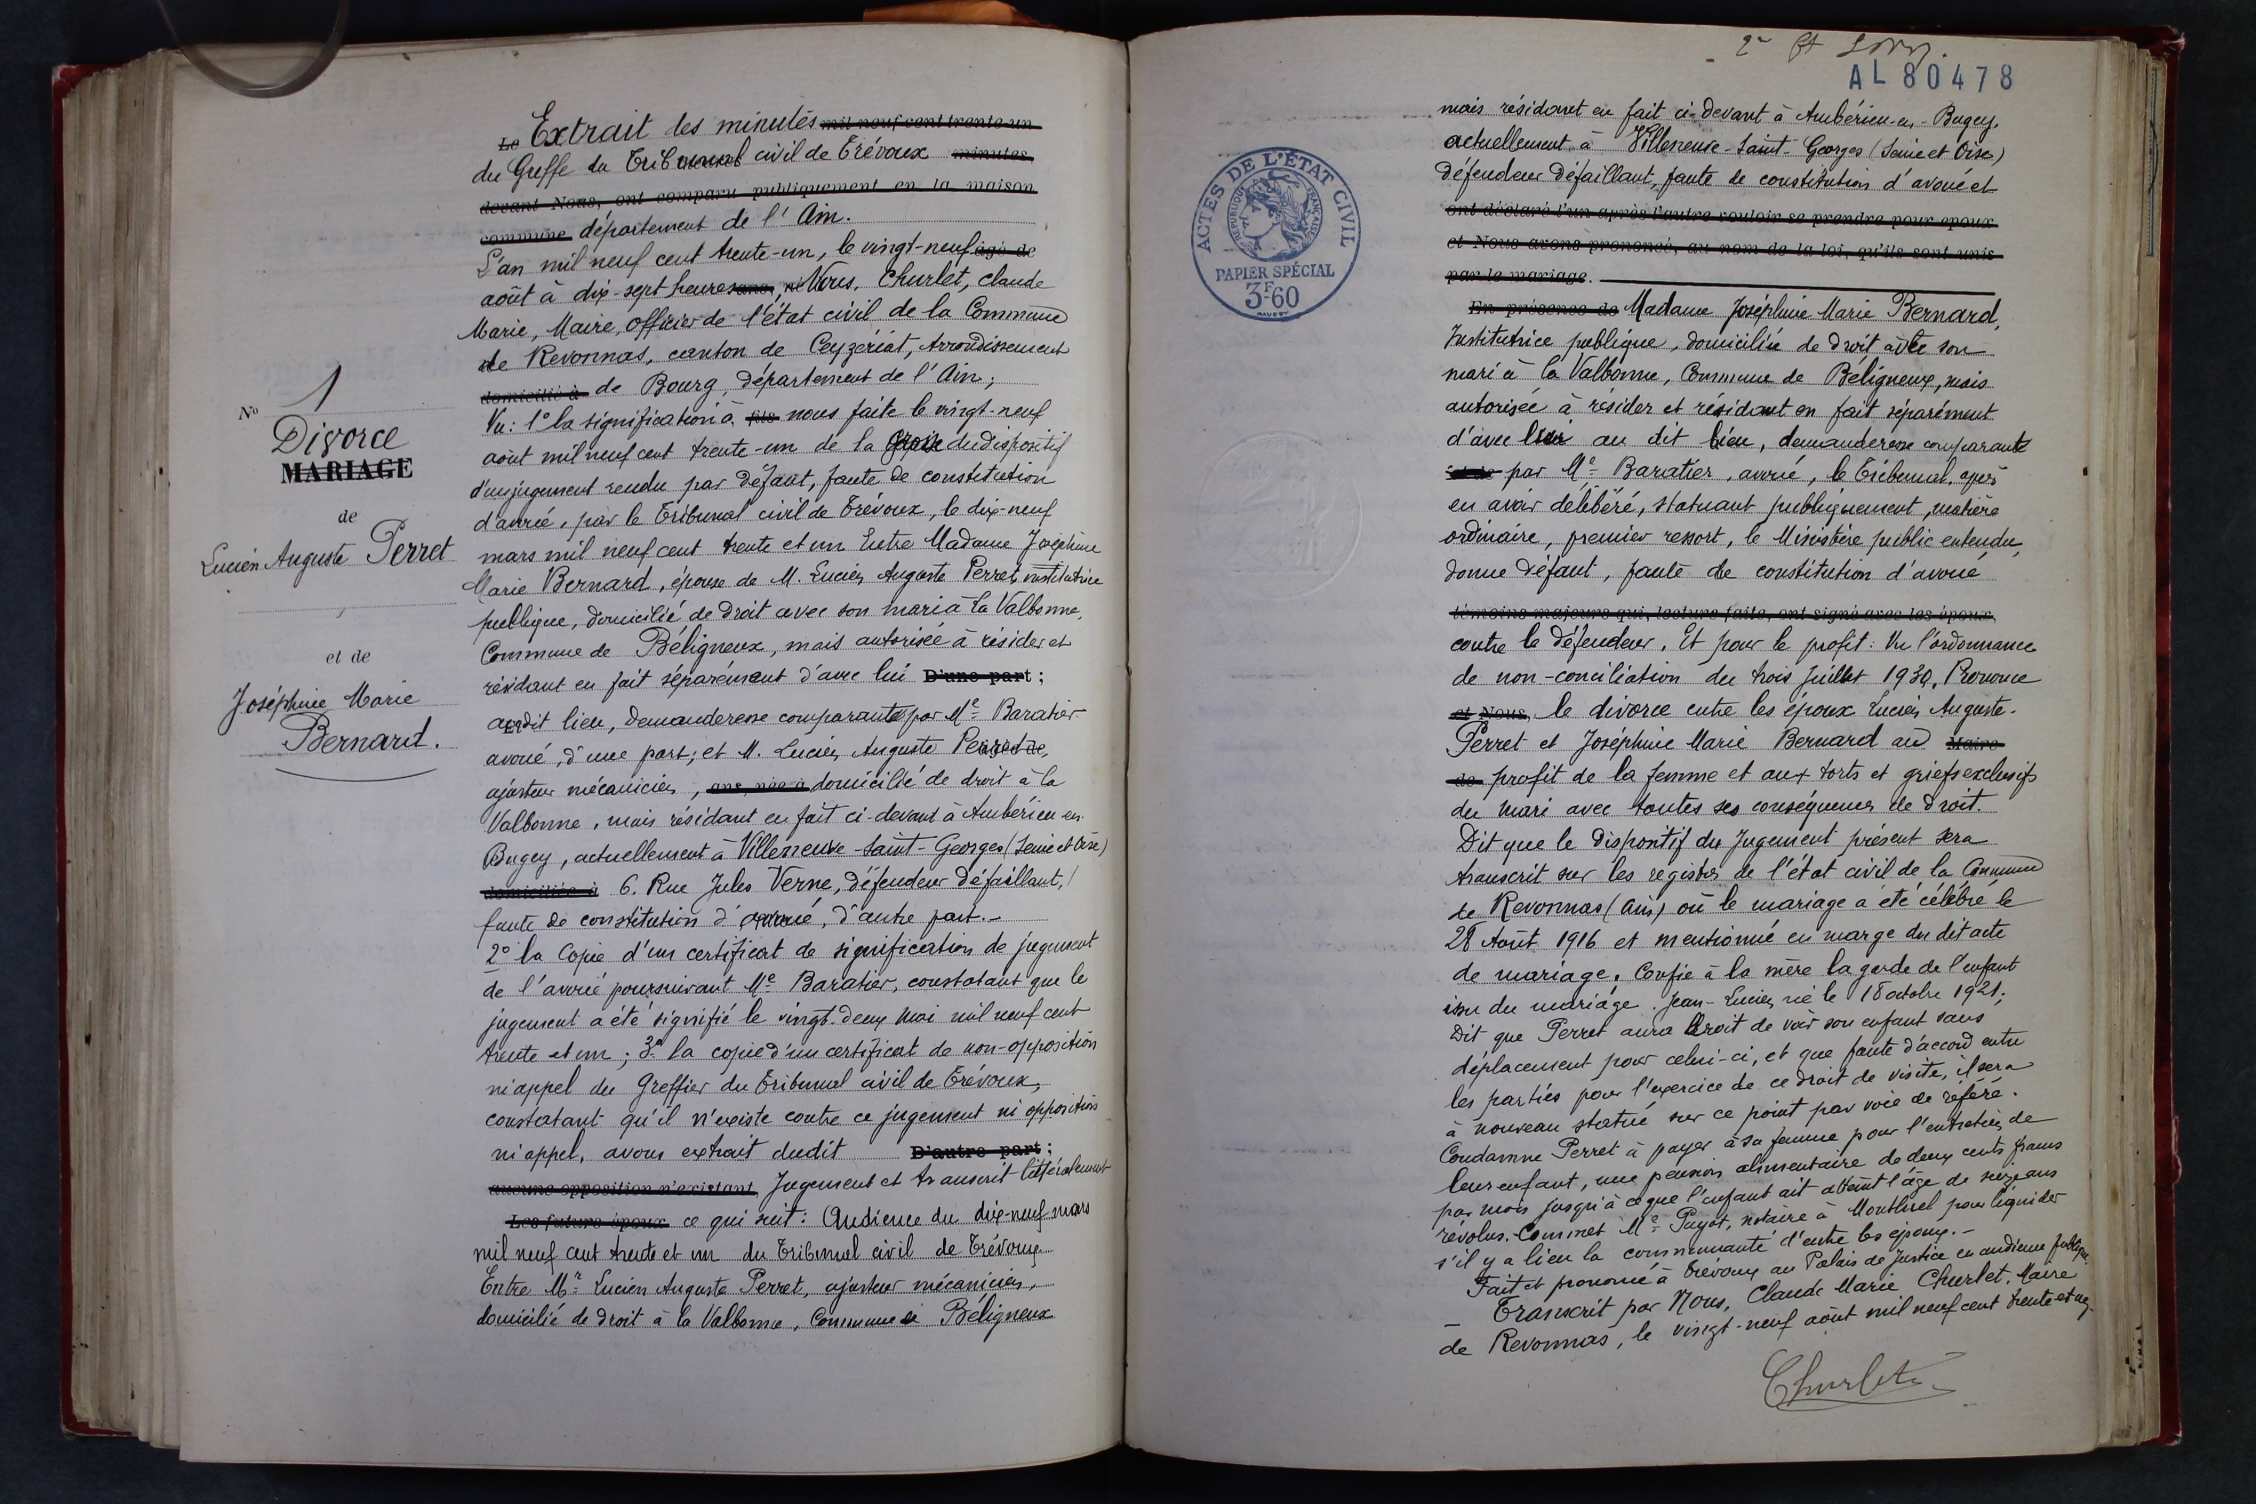 N° 1
Divorce
MARIAGE
de
Lucien Auguste Perret
et de
Joséphine Marie
Bernard.
Le Extrait des minutes mil neuf cent trente-un
du Greffe du Tribunal civil de Trévoux minutes
devant Nous, ont comparu publiquement en la maison
commune département de l'Ain.
L'an mil neuf cent trente-un, le vingt-neuf âgé de
août à dix-sept heures ans, né Nous, Churlet, Claude
Marie, Maire, officier de l'état civil de la Commune
de Revonnas, canton de Ceyzériat, Arrondissement
domicilié à de Bourg, département de l'Ain;
Vu: 1° la signification à fils nous faite le vingt-neuf
août mil neuf cent trente-un de la grosse du dispositif
d'un jugement rendu par défaut, faute de constitution
d'avoué, par le Tribunal civil de Trévoux, le dix-neuf
mars mil neuf cent trente et un Entre Madame Joséphine
Marie Bernard, épouse de M. Lucien Auguste Perret, institutrice
publique, domicilié de droit avec son mari à la Valbonne,
Commune de Béligneux, mais autorisée à résider et
résidant en fait séparément d'avec lui D'une part;
audit lieu, demanderesse comparante par Me Baratier
avoué, d'une part; et M. Lucien Auguste Perret âgée de,
ajusteur mécanicien, ans, née à domicilié de droit à la
Valbonne, mais résidant en fait ci-devant à Ambérieu en
Bugey, actuellement à Villeneuve-Saint-Georges (Seine et Oise)
domiciliée à 6. Rue Jules Verne, défendeur défaillant,
faute de constitution d'avoué, d'autre part.-
2° la Copie d'un certificat de signification de jugement
de l'avoué poursuivant Me Baratier, constatant que le
jugement a été signifié le vingt-deux Mai mil neuf cent
trente et un; 3° la copie d'un certificat de non-opposition
ni appel du Greffier du Tribunal civil de Trévoux,
constatant qu'il n'existe contre ce jugement ni opposition
ni appel, avons extrait dudit D'autre part;
aucune opposition n'existant Jugement et transcrit littéralement
Les futurs époux ce qui suit: Audience du dix-neuf mars
mil neuf cent trente et un du Tribunal civil de Trévoux
Entre Mr Lucien Auguste Perret, ajusteur mécanicien,
domicilié de droit à la Valbonne, Commune de Béligneux
AL 80478
ACTES DE L'ÉTAT CIVIL
RÉPUBLIQUE FRANÇAISE
PAPIER SPÉCIAL
3F60
mais résidant en fait ci-devant à Ambérieu-en-Bugey,
actuellement à Villeneuve-Saint-Georges (Seine et Oise)
défendeur défaillant, faute de constitution d'avoué et
ont déclaré l'un après l'autre vouloir se prendre pour époux
et Nous avons prononcé, au nom de la loi, qu'ils sont unis
par le mariage.
En présence de Madame Joséphine Marie Bernard,
Institutrice publique, domiciliée de droit avec son
mari à la Valbonne, Commune de Béligneux, mais
autorisée à résider et résidant en fait séparément
d'avec lui au dit lieu, demanderesse comparante
par Me Baratier, avoué, le Tribunal, après
en avoir délibéré, statuant publiquement, matière
ordinaire, premier ressort, le Ministère public entendu,
donne défaut, faute de constitution d'avoué
témoins majeurs qui, lecture faite, ont signé avec les époux
contre le défendeur. Et pour le profit: Vu l'ordonnance
de non-conciliation du trois juillet 1930, Prononce
et Nous, le divorce entre les époux Lucien Auguste-
Perret et Joséphine Marie Bernard au Maire
de profit de la femme et aux torts et griefs exclusifs
du mari avec toutes ses conséquences de droit.
Dit que le dispositif du Jugement présent sera
transcrit sur les registres de l'état civil de la Commune
de Revonnas (Ain) où le mariage a été célébré le
28 Août 1916 et mentionné en marge du dit acte
de mariage. Confie à la mère la garde de l'enfant
issu du mariage. Jean-Lucien né le 18 octobre 1921;
Dit que Perret aura droit de voir son enfant sans
déplacement pour celui-ci, et que faute d'accord entre
les parties pour l'exercice de ce droit de visite, il sera
à nouveau statué sur ce point par voie de référé.
Condamne Perret à payer à sa femme pour l'entretien de
leur enfant, une pension alimentaire de deux cents francs
par mois jusqu'à ce que l'enfant ait atteint l'âge de seize ans
révolus. Commet Me Payot, notaire à Montluel pour liquider
s'il y a lieu la communauté d'entre les époux.-
Fait et prononcé à Trévoux au Palais de Justice en audience publique.
Transcrit par Nous, Claude Marie Churlet, Maire
de Revonnas, le vingt-neuf août mil neuf cent trente et un.
Churlet